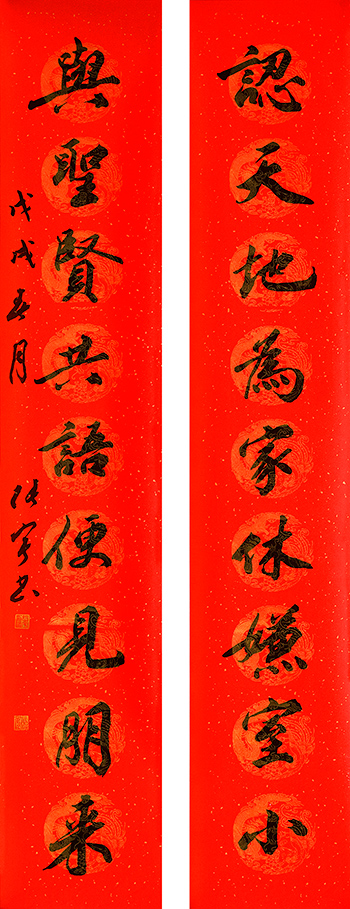 認天地為家休嫌室小
與聖賢共語便見朋来
戊戌春月